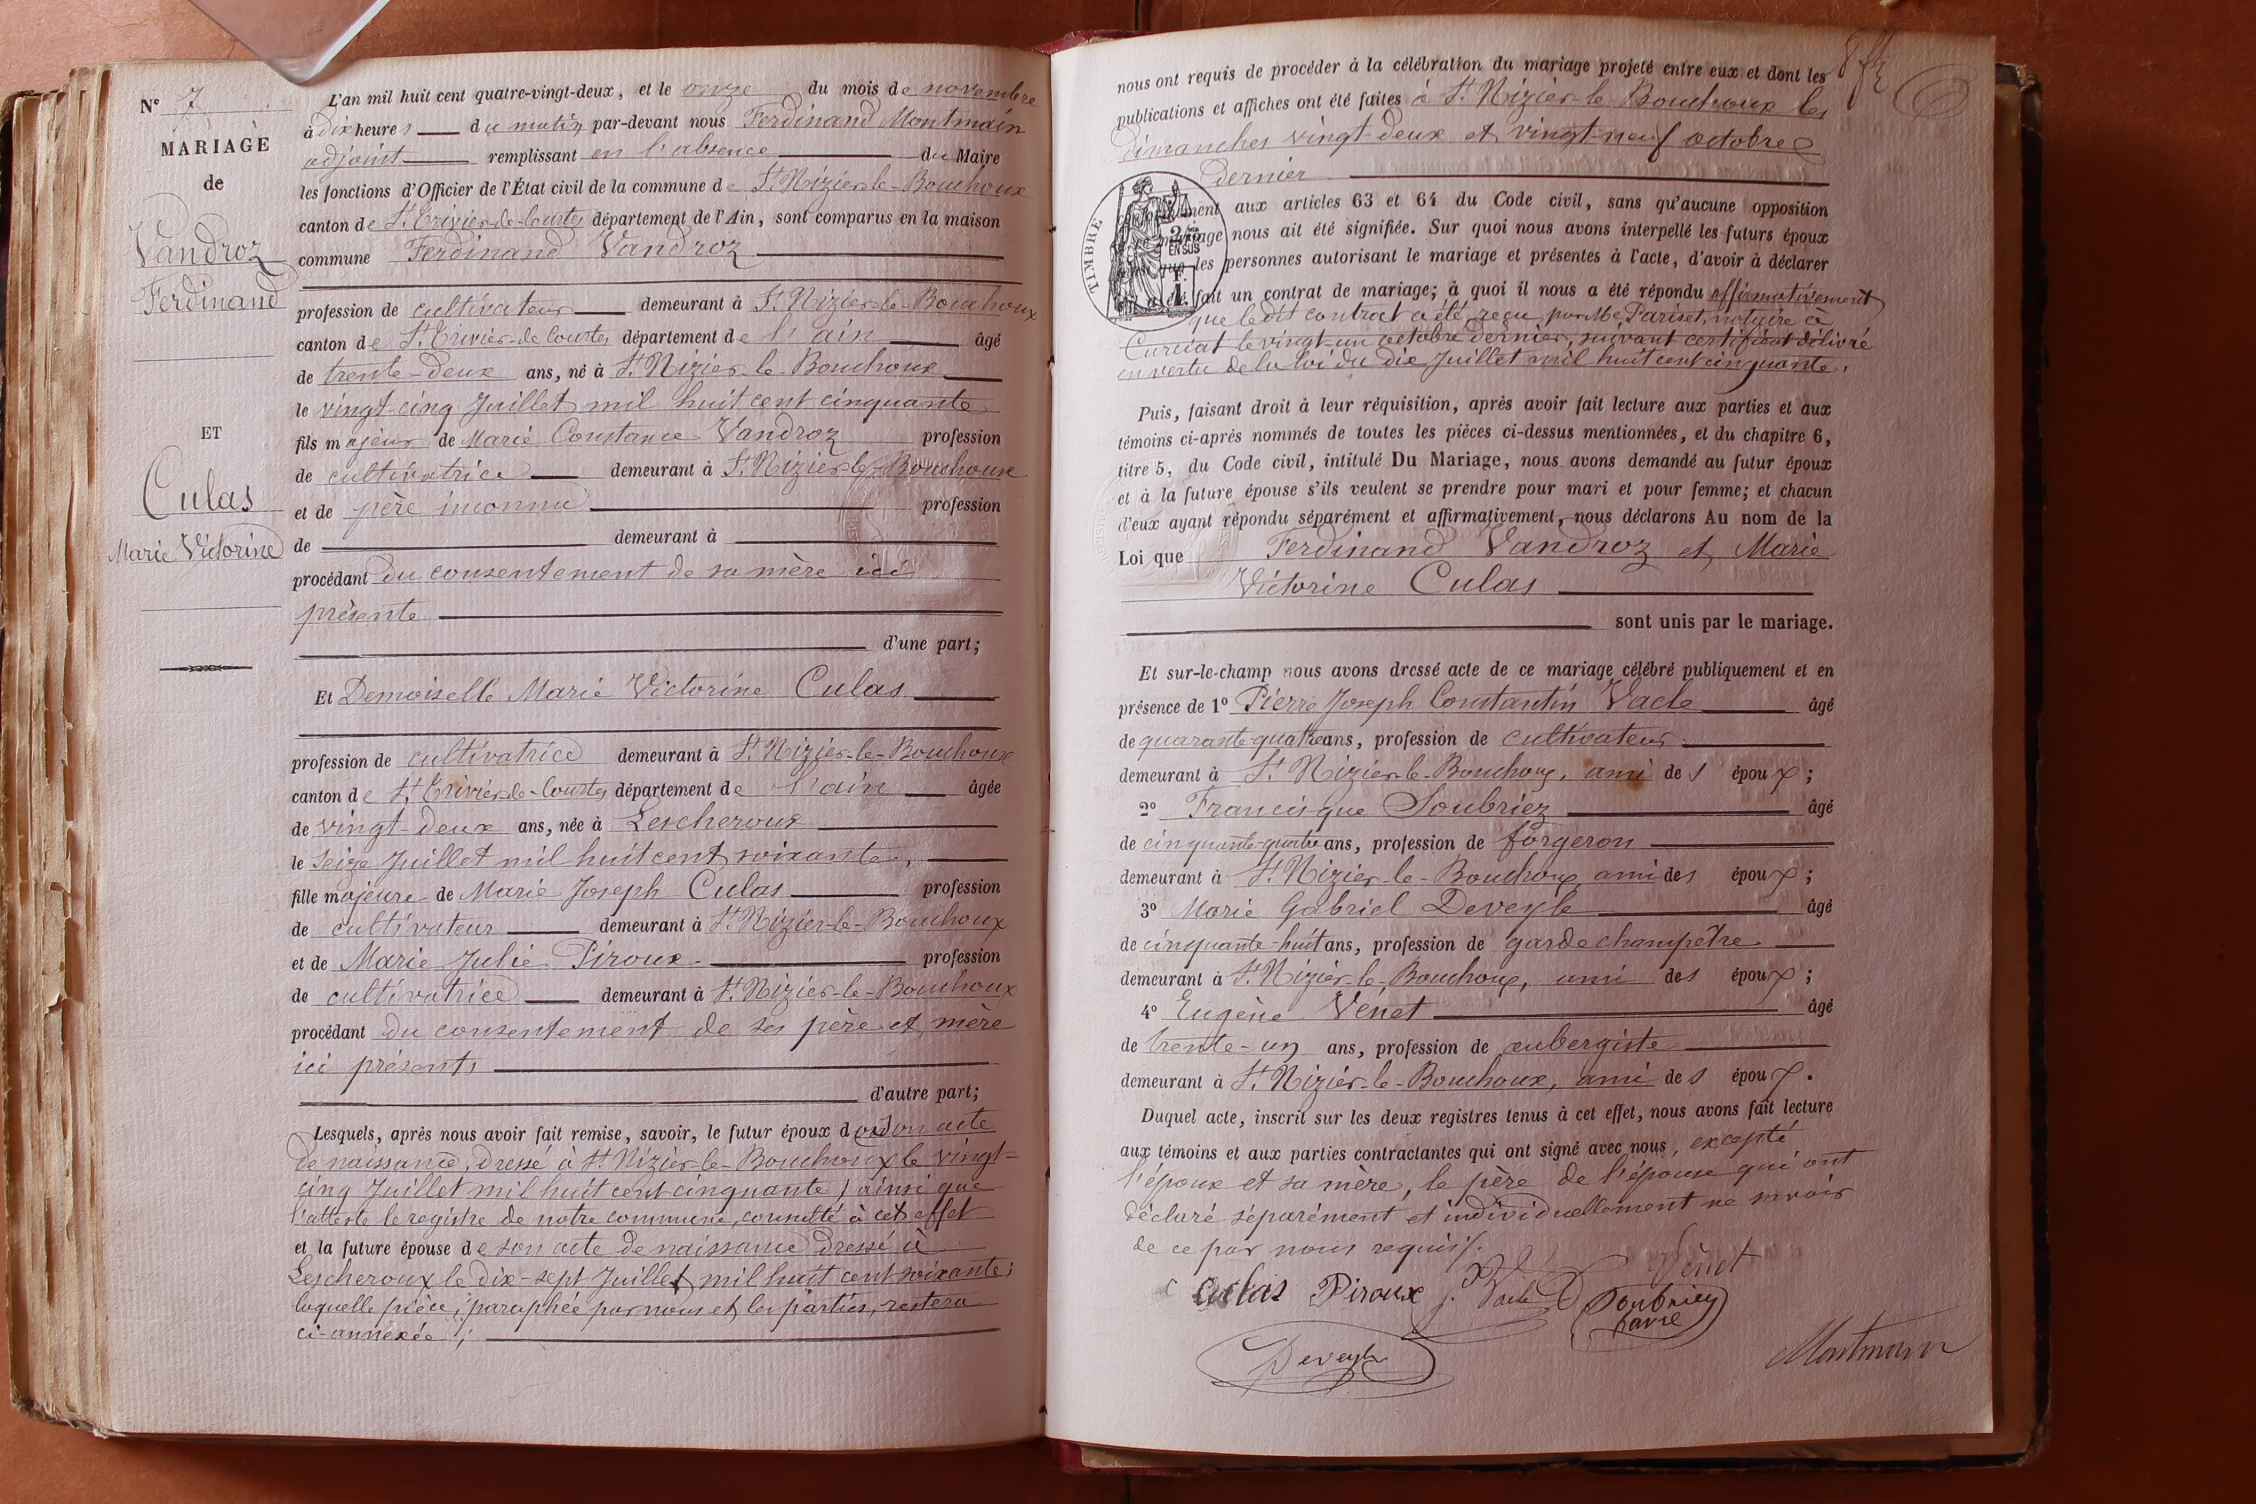 N° 7
MARIAGE
de
Vandroz
Ferdinand
ET
Culas
Marie Victorine
L'an mil huit cent quatre-vingt-deux, et le onze du mois de novembre
à dix heures du matin par-devant nous Ferdinand Montmain
adjoint remplissant en l'absence du Maire
les fonctions d'Officier de l'État civil de la commune de St Nizier-le-Bouchoux
canton de St Trivier-de-Courtes département de l'Ain, sont comparus en la maison
commune Ferdinand Vandroz
profession de cultivateur demeurant à St Nizier-le-Bouchoux
canton de St Trivier-de-Courtes département de l'ain âgé
de trente-deux ans, né à St Nizier-le-Bouchoux
le vingt-cinq Juillet mil huit cent cinquante
fils majeur de Marie Constance Vandroz profession
de cultivatrice demeurant à St Nizier-le-Bouchoux
et de père inconnu profession
de demeurant à
procédant du consentement de sa mère ici
présente
d'une part;
Et Demoiselle Marie Victorine Culas
profession de cultivatrice demeurant à St Nizier-le-Bouchoux
canton de St Trivier-de-Courtes département de l'ain âgée
de vingt-deux ans, née à Lescheroux
le seize Juillet mil huit cent soixante,
fille majeure de Marie Joseph Culas profession
de cultivateur demeurant à St Nizier-le-Bouchoux
et de Marie Julie Piroux profession
de cultivatrice demeurant à St Nizier-le-Bouchoux
procédant du consentement de ses père et mère
ici présents
d'autre part;
Lesquels, après nous avoir fait remise, savoir, le futur époux d son acte
de naissance, dressé à St Nizier-le-Bouchoux le vingt-
cinq Juillet mil huit cent cinquante) ainsi que
l'atteste le registre de notre commune, consulté à cet effet
et la future épouse de son acte de naissance dressé à
Lescheroux le dix-sept Juillet mil huit cent soixante;
laquelle pièce, paraphée par nous et les parties, restera
ci-annexée;
nous ont requis de procéder à la célébration du mariage projeté entre eux et dont les
publications et affiches ont été faites à St Nizier-le-Bouchoux les
dimanches vingt-deux et vingt-neuf octobre
dernier
TIMBRE
EN SUS
aux articles 63 et 64 du Code civil, sans qu'aucune opposition
mariage nous ait été signifiée. Sur quoi nous avons interpellé les futurs époux
que les personnes autorisant le mariage et présentes à l'acte, d'avoir à déclarer
fait un contrat de mariage; à quoi il nous a été répondu affirmativement
que le dit contrat a été reçu par Me Pariset, notaire à
Curciat le vingt-un octobre dernier, suivant certificat délivré
en vertu de la loi du dix Juillet mil huit cent cinquante.
Puis, faisant droit à leur réquisition, après avoir fait lecture aux parties et aux
témoins ci-après nommés de toutes les pièces ci-dessus mentionnées, et du chapitre 6,
titre 5, du Code civil, intitulé Du Mariage, nous avons demandé au futur époux
et à la future épouse s'ils veulent se prendre pour mari et pour femme; et chacun
d'eux ayant répondu séparément et affirmativement, nous déclarons Au nom de la
Loi que Ferdinand Vandroz et Marie
Victorine Culas
sont unis par le mariage.
Et sur-le-champ nous avons dressé acte de ce mariage célébré publiquement et en
présence de 1° Pierre Joseph Constantin Vacle âgé
de quarante-quatre ans, profession de cultivateur
demeurant à St Nizier-le-Bouchoux, ami des époux;
2° Francisque Soubriez âgé
de cinquante-quatre ans, profession de forgeron
demeurant à St Nizier-le-Bouchoux ami des époux;
3° Marie Gabriel Deveyle âgé
de cinquante-huit ans, profession de garde champêtre
demeurant à St Nizier-le-Bouchoux, ami des époux;
4° Eugène Vénet âgé
de trente-un ans, profession de aubergiste
demeurant à St Nizier-le-Bouchoux, ami des époux.
Duquel acte, inscrit sur les deux registres tenus à cet effet, nous avons fait lecture
aux témoins et aux parties contractantes qui ont signé avec nous, excepté
l'époux et sa mère, le père de l'épouse qui ont
déclaré séparément et individuellement ne savoir
de ce par nous requis.
Vénet
Culas Piroux J. Vacle Soubriez
Deveyle
Montmain